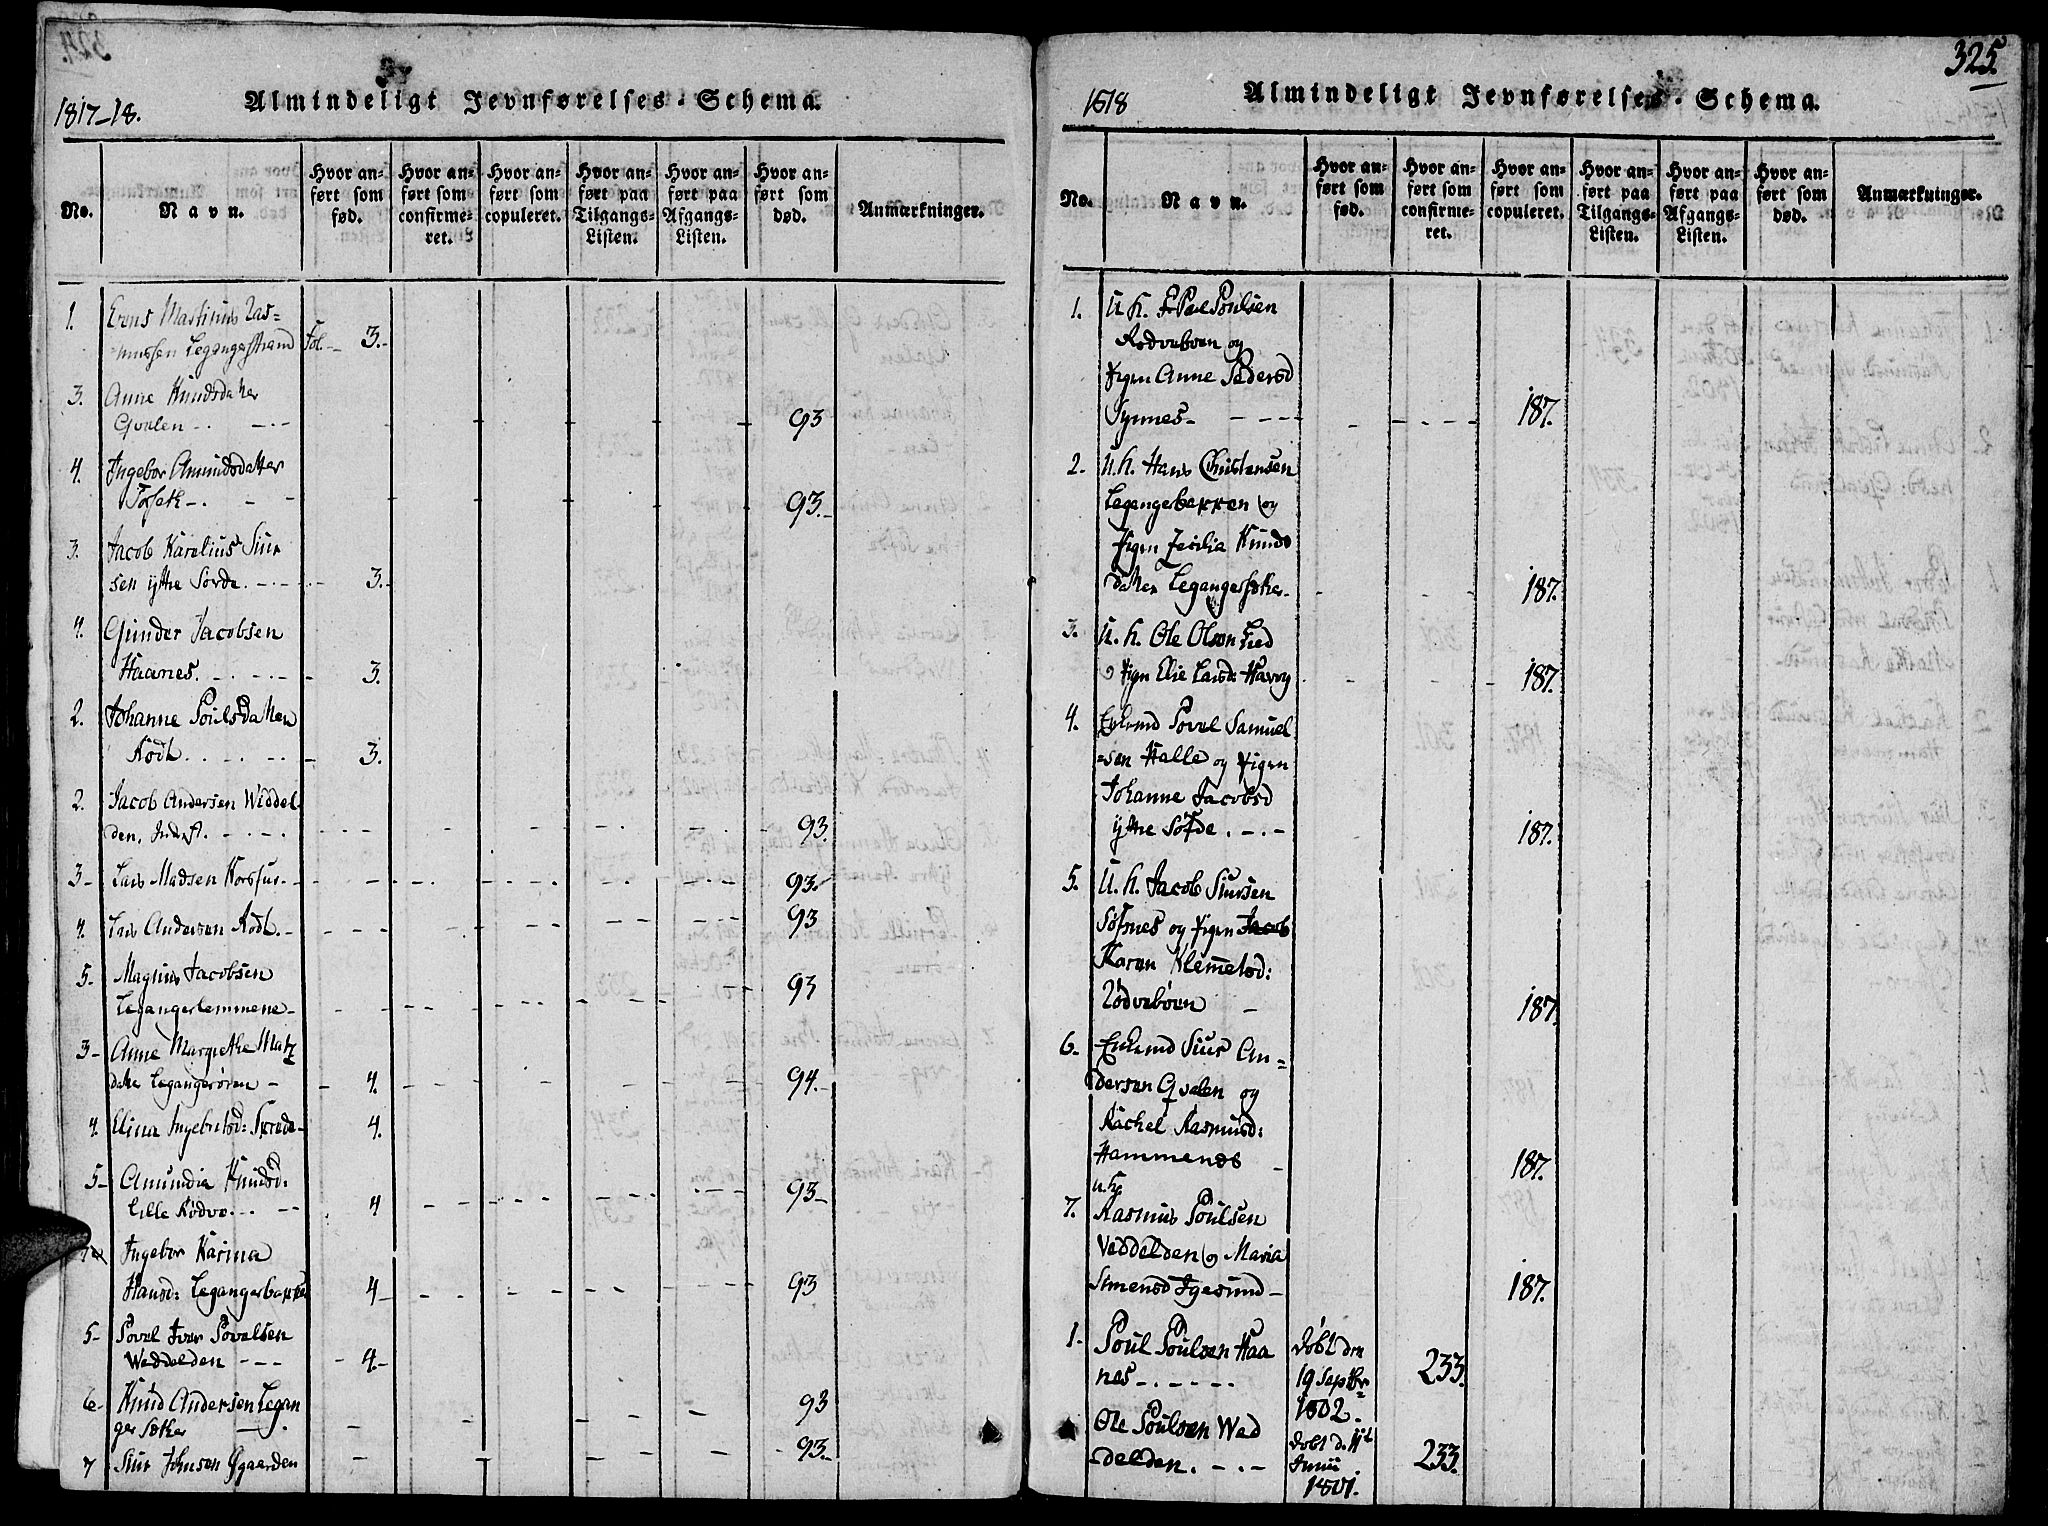 1817-18.
Almindeligt Jevnførelses-Schema.
No.
Navn.
Hvor anført som fød.
Hvor anført som confirmeret.
Hvor anført som copuleret.
Hvor anført paa Tilgangs-Listen.
Hvor anført paa Afgangs-Listen.
Hvor anført som død.
Anmærkninger.
1. Erens Martinus Ras=
mussen Legangerstrand Fol. 3.
3. Anne Knudsdatter
Gvalen 93
4. Ingebor Amundsdatter
Torseth 93.
3. Jacob Karelius Siur
sen yttre Sørde 3.
4. Gunder Jacobsen
Haanes. 3.
2. Johanne Poulsdatter
Rødt 3.
2. Jacob Andersen Weddel
den, Inds. 93.
3- Lars Madsen Korsfur 93.
4. Lars Andersen Rødt. 93
5- Magnus Jacobsen
Legangerlemmene 93
3- Anne Margrethe Matz
datter Legangerøren 4. 94.
4. Elina Ingebretsd: Skrede 4.
5- Amundia Knudsd:
Lille Rødvo 4 93-
Ingebor Karina
Hansd: Legangerbakken 4- 93
5- Povel Iver Povelsen
Weddelden 4.-
6- Knud Andersen Legan
ger Sætter 93
7 Siur Johnsen Øgaarden 93.
325.
1818
Almindeligt Jevnførelses-Schema.
No.
Navn.
Hvor anført som fød.
Hvor anført som confirmeret.
Hvor anført som copuleret.
Hvor anført paa Tilgangs-Listen.
Hvor anført paa Afgangs-Listen.
Hvor anført som død.
Anmærkninger.
1. U. K. Poulsen
Rødvebøen og
Pigen Anne Pedersd
Synnes- 187.
2- U. K. Hans Christensen
Legangerbakken og
Pigen Zecilia Knuds
datter Legangersæter- 187.
3. U. K. Ole Olsen Lied
o Pigen Elie Larsd: Havoy 187.
4. Enkemd Povel Samuel
=sen Halle og Pigen
Johanne Jacobsd
ÿttre Søfde 187.
5. U. K. Jacob Siursen
Søfsnes og Pigen Jacob
Karen Klemetsd:
Rødvebøen 187.
6- Enkemd Siur An=
dersen Gvalen og
Rachel Rasmusd:
Hammenes 187.
u. K.
7. Rasmus Poulsen
Veddelden og Maria
Simensd Igesund- 187.
1- Poul Poulsen Haa
nes Døbt den
19 Septbr
1802. 233.
Ole Poulsen Wed
delden. Døbt d. 11te
Junii
1801. 233.